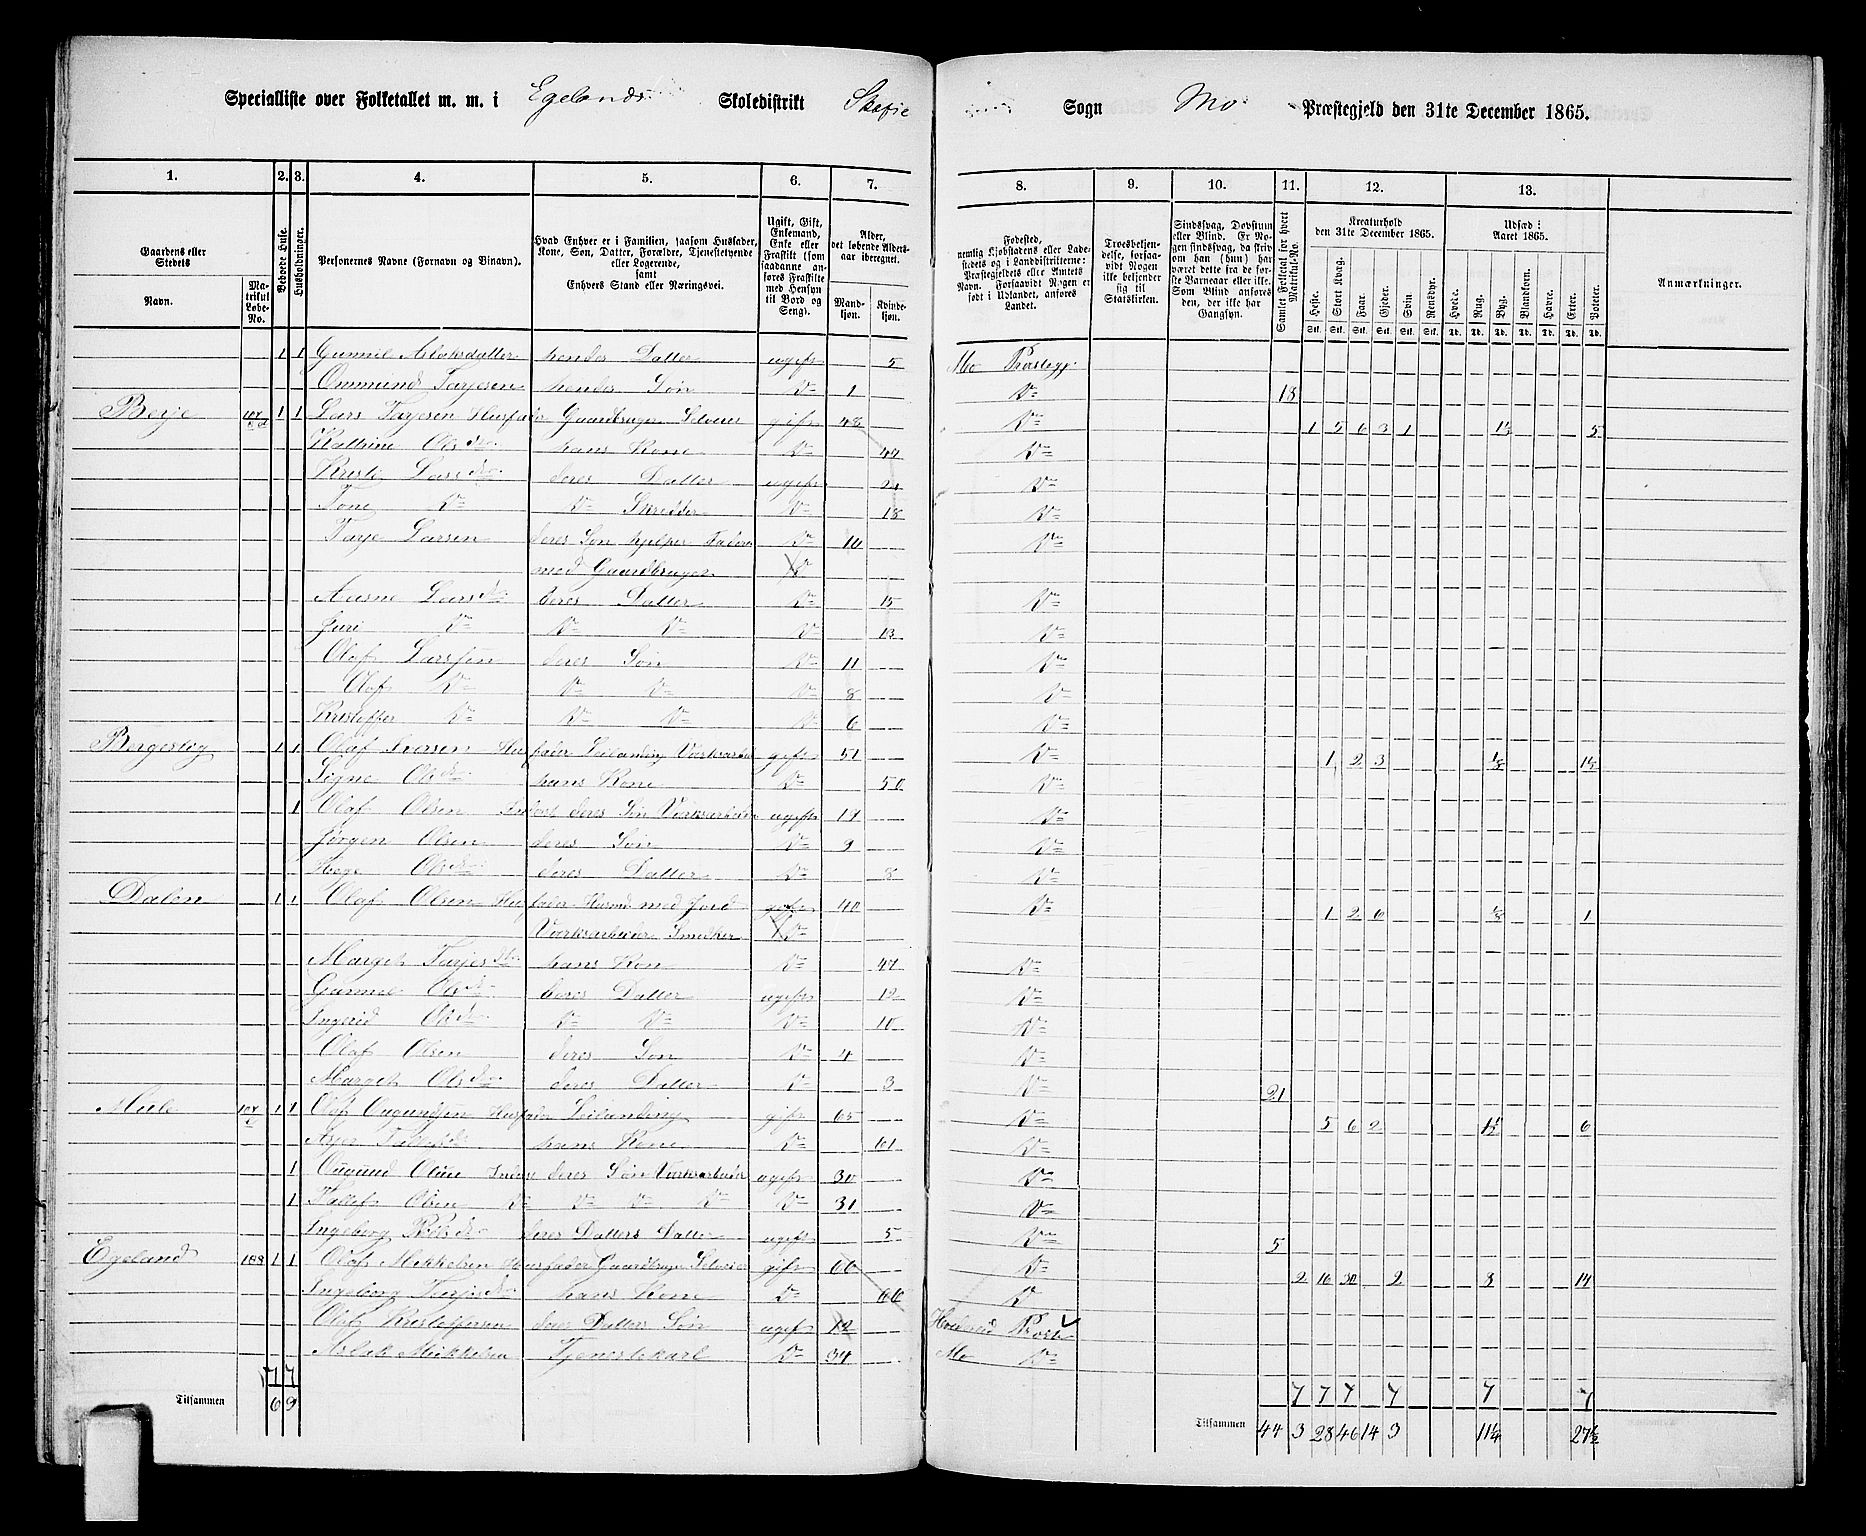 Specialliste over Folketallet m. m. i Egelands Skoledistrikt Skafse Sogn Mo Præstegjeld den 31te December 1865.
1. 2. 3. 4. 5. 6. 7. 8. 9. 10. 11. 12. 13.
Gaardens eller Stedets Navn. Matrikul Løbe-No.
Beboede Huse.
Husholdninger.
Personernes Navne (Fornavn og Binavn).
Hvad Enhver er i Familien, saasom Husfader, Kone, Søn, Datter, Forældre, Tjenestetyende eller Logerende, samt Enhvers Stand eller Næringsvei.
Ugift, Gift, Enkemand, Enke eller Fraskilt (som saadanne anføres Fraskilte med Hensyn til Bord og Seng).
Alder, det løbende Aldersaar iberegnet. Mandkjøn. Kvindekjøn.
Fødested, nemlig Kjøbstadens eller Ladestedets og i Landdistrikterne: Præstegjeldets eller Amtets Navn. Forsaavidt Nogen er født i Udlandet, anføres Landet.
Troesbekjendelse, forsaavidt Nogen ikke bekjender sig til Statskirken.
Sindssvag, Døvstum eller Blind. Er Nogen sindssvag, da skrives om han (hun) har været dette fra de første Barneaar eller ikke. Som Blind anføres den, der ikke har Gangsyn.
Samlet Folketal for hvert Matrikul-No.
Kreaturhold den 31te December 1865. Heste. Stort Kvæg. Faar. Gjeder. Svin. Rensdyr.
Udsæd i Aaret 1865. Hvede. Rug. Byg. Blandkorn. Havre. Erter. Poteter.
Anmærkninger.
1 1 Gunnil Aslaksdatter hendes Datter ugift 5 Mo Præstegj.
Ommund Tarjesen hendes Søn Do 1 Do 18
Berje 107 1 1 Lars Tarjesen Husfader Gaardbruger Selveier gift 48 Do 1 5 6 3 1 1½ 5
Kathrine Olsdtr hans Kone Do 47 Do
Larsdtr deres Datter ugift Do
Tone Do Do Do 18 Do
Tarje Larsen deres Søn hjelper Faderen Do Do
med Gaardbruget Do
Aasne Larsdtr deres Datter Do 15 Do
Juri Do Do Do Do 13 Do
Olaf Larssen deres Søn Do 11 Do
Olaf Do Do Do Do 8 Do
Kristoffer Do Do Do Do 6 Do
Olaf Iversen Husfader Leilending gift 51 Do 1 2 3 ⅛ 1½
Signe Olsdtr hans Kone Do 50 Do
1 Olaf Olsen Inderst deres Søn Værksarbeider ugift 19 Do
Jørgen Olsen deres Søn Do 9 Do
Olsdtr deres Datter Do 8 Do
Dalen 1 1 Olaf Olsen Husfader Husmd med Jord gift 40 Do 1 2 6 ⅛ 1
Værksarbeider Do
Marget Tarjesdtr hans Kon Do 47 Do
Gunnil Olsdtr deres Datter ugift 12 Do
Ingerid Olsdtr Do Do Do 10 Do
Olaf Olsen deres Søn Do 4 Do
Marget Olsdtr deres Datter Do 3 Do 21
107 1 1 Olaf Husfader Leilending gift 65 Do 5 6 2 6
hans Kone Do 61 Do
1 Olsen Inderst deres Søn Værksarbeider ugift 30 Do
1 Olsen Do Do Do Do Do 31 Do
Ingeborg deres Datters Datter ugift 5 Do 5
Egeland 108 1 1 Olaf Mikkelsen Husfader Gaardbruger Selveier gift 66 Do 2 16 30 2 8 14
Ingeborg Tarjesdtr hans Kone Do 66 Do
Olaf Kristoffersen deres Datters Søn ugift 12 Hvideseid Præste
Aslak Mikkelsen Tjenestekarl Do 34 Mo Do
7 7 7 7 7 7 7 7
Tilsammen 6 9 Tilsammen 44 3 28 46 14 3 11¼ 27½